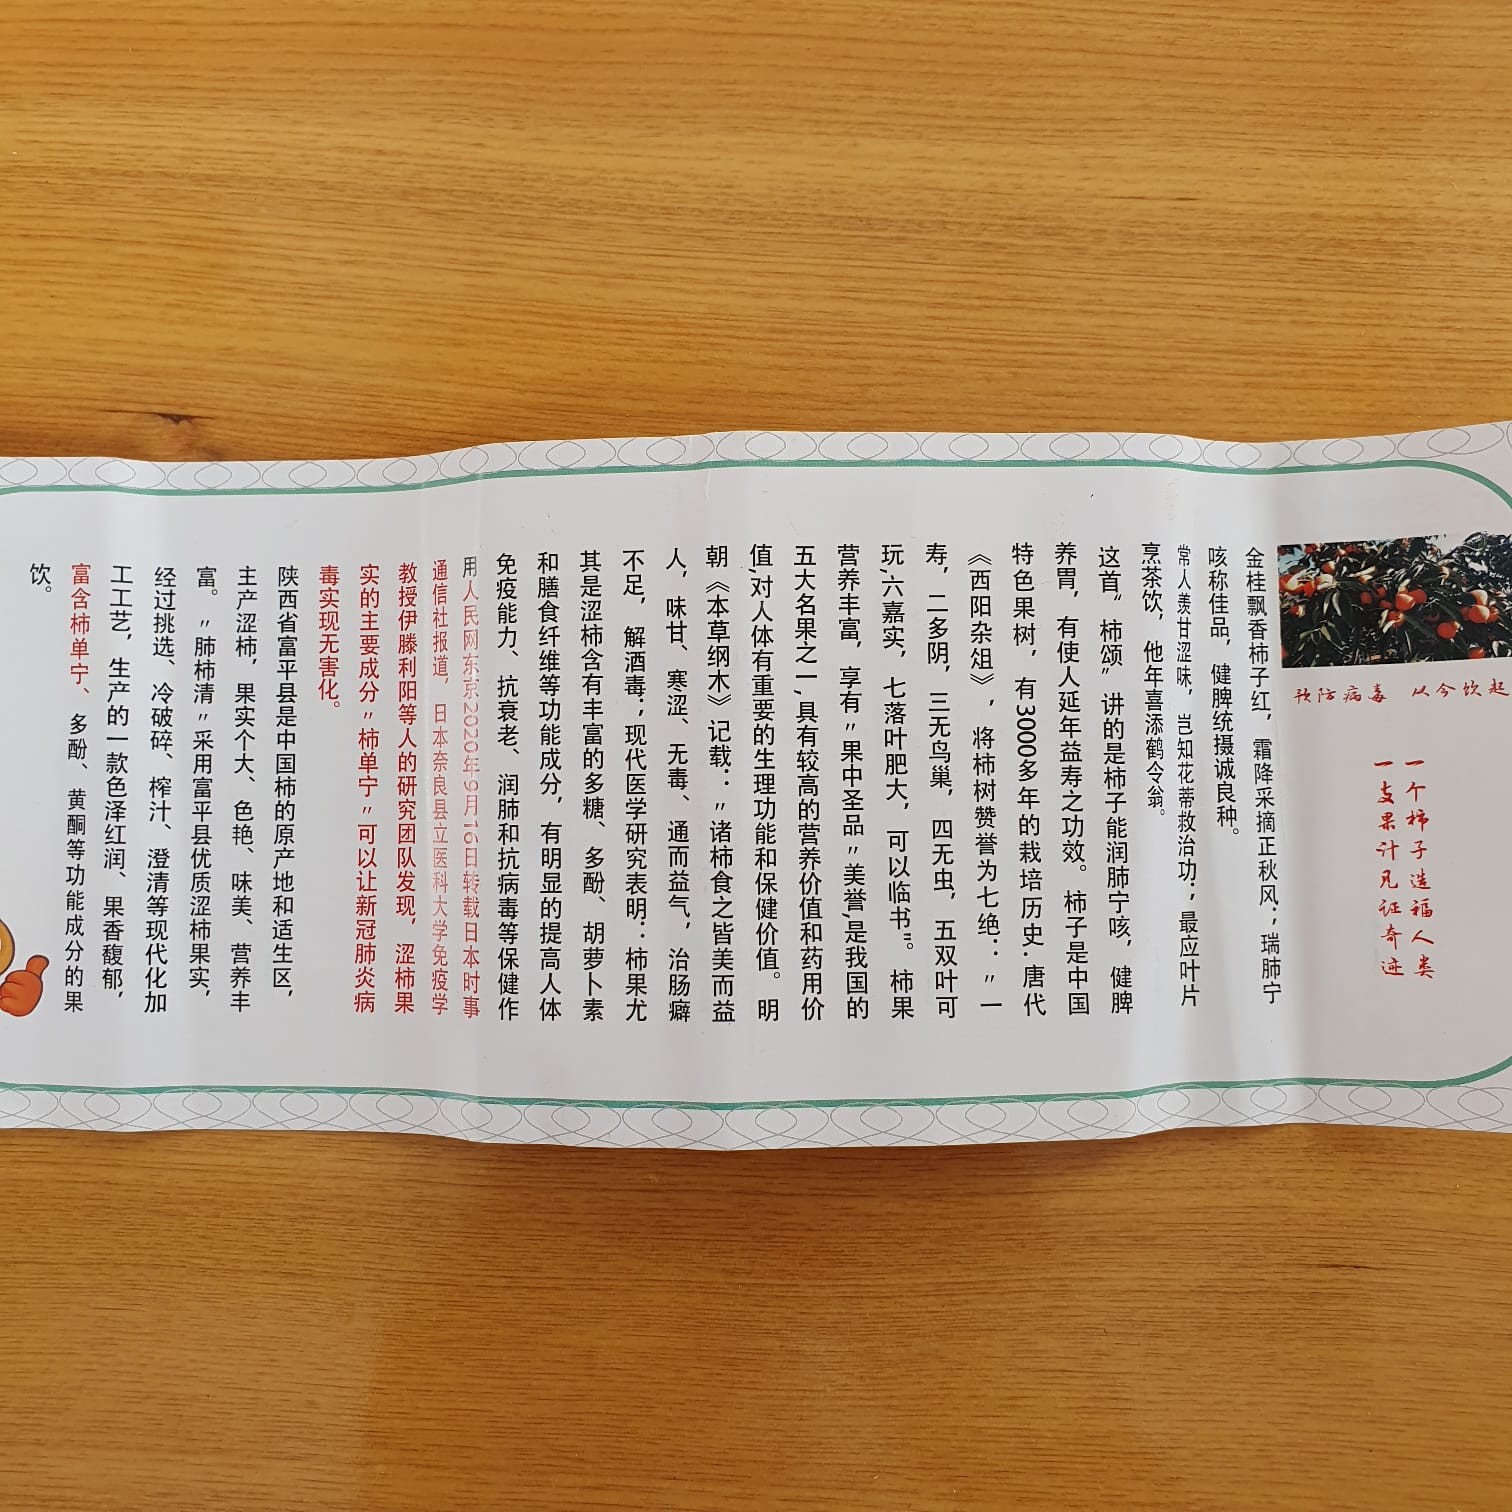 预防病毒 从今饮起
一个柿子造福人类
一支果汁见证奇迹
金桂飘香柿子红，霜降采摘正秋风；瑞肺宁
咳称佳品，健脾统摄诚良种。
常人羡甘涩味，岂知花蒂救治功；最应叶片
烹茶饮，他年喜添鹤令翁。
这首"柿颂"讲的是柿子能润肺宁咳，健脾
养胃，有使人延年益寿之功效。柿子是中国
特色果树，有3000多年的栽培历史.唐代
《西阳杂俎》，将柿树赞誉为七绝："一
寿，二多阴，三无鸟巢，四无虫，五双叶可
玩,六嘉实，七落叶肥大，可以临书"。柿果
营养丰富，享有"果中圣品"美誉,是我国的
五大名果之一,具有较高的营养价值和药用价
值,对人体有重要的生理功能和保健价值。明
朝《本草纲木》记载："诸柿食之皆美而益
人，味甘、寒涩、无毒、通而益气，治肠癖
不足，解酒毒；现代医学研究表明：柿果尤
其是涩柿含有丰富的多糖、多酚、胡萝卜素
和膳食纤维等功能成分，有明显的提高人体
免疫能力、抗衰老、润肺和抗病毒等保健作
用人民网东京2020年9月16日转载日本时事
通信社报道，日本奈良县立医科大学免疫学
教授伊滕利阳等人的研究团队发现，涩柿果
实的主要成分"柿单宁"可以让新冠肺炎病
毒实现无害化。
陕西省富平县是中国柿的原产地和适生区，
主产涩柿，果实个大、色艳、味美、营养丰
富。"肺柿清"采用富平县优质涩柿果实，
经过挑选、冷破碎、榨汁、澄清等现代化加
工工艺，生产的一款色泽红润、果香馥郁，
富含柿单宁、多酚、黄酮等功能成分的果
饮。